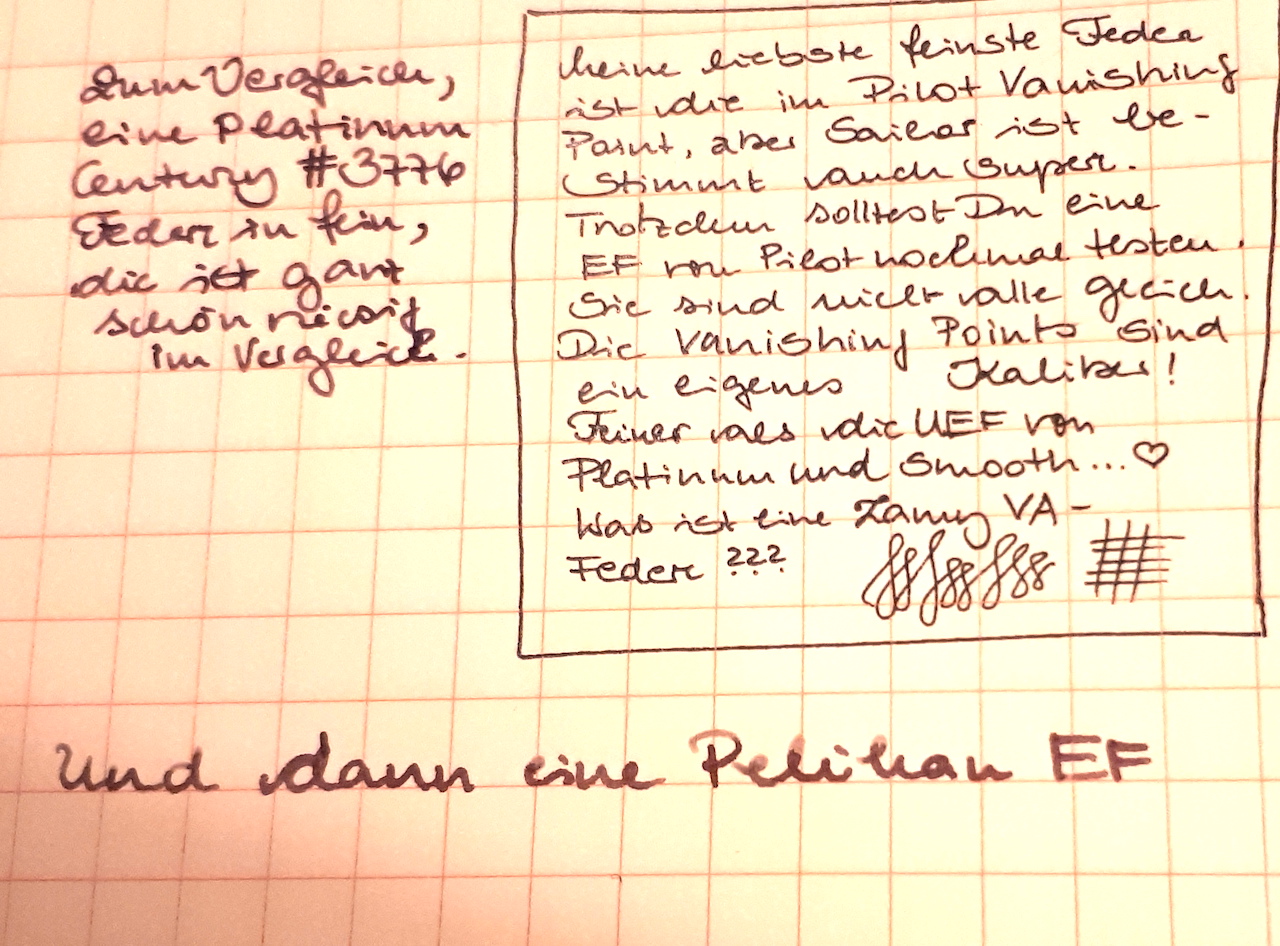 Zum Vergleich,
eine Platinum
Century #3776
Feder in fein,
die ist ganz
schön riesig
im Vergleich.
Meine liebste feinste Feder
ist die im Pilot Vanishing
Point, aber Sailor ist be-
stimmt auch super.
Trotzdem solltest Du eine
EF von Pilot nochmal testen.
Sie sind nicht alle gleich.
Die Vanishing Points sind
ein eigenes Kaliber!
Feiner als die UEF von
Platinum und smooth... ♡
Was ist eine Lamy VA-
Feder ???
Und dann eine Pelikan EF